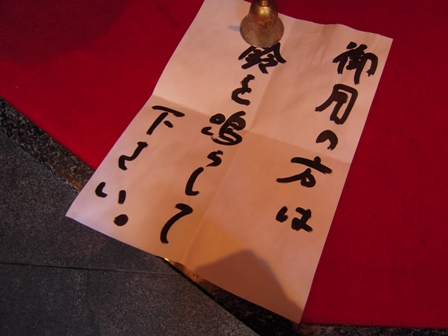 御用の方は
鈴を鳴らして
下さい。